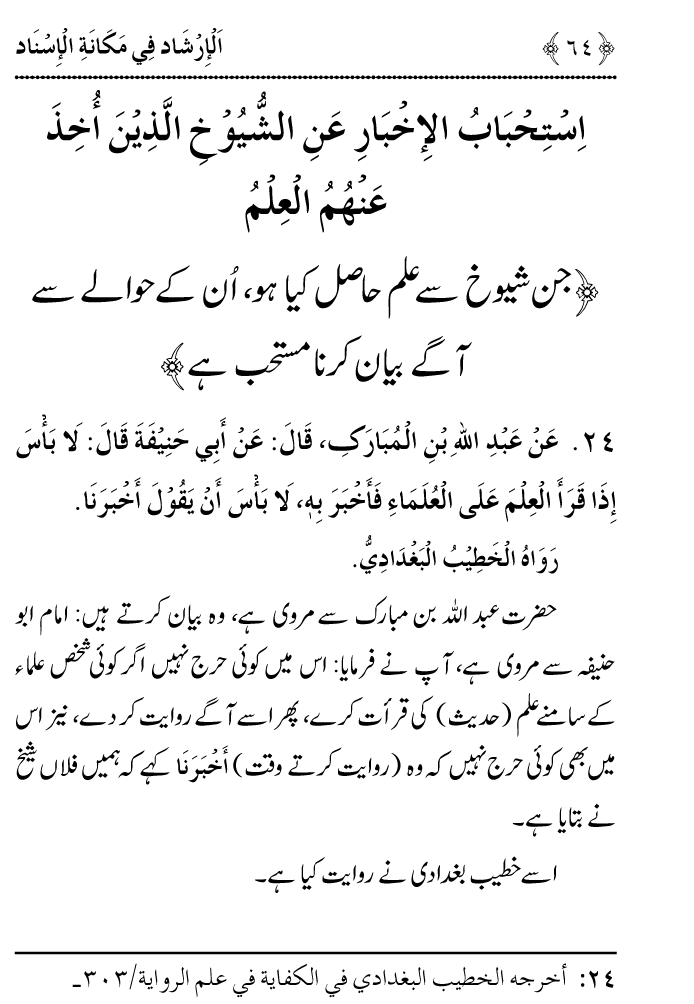 ﴿٦٤﴾ اَلْإِرْشَاد فِي مَكَانَةِ الْإِسْنَاد
اِسْتِحْبَابُ الإِخْبَارِ عَنِ الشُّيُوْخِ الَّذِيْنَ أُخِذَ
عَنْهُمُ الْعِلْمُ
﴿جن شیوخ سے علم حاصل کیا ہو، اُن کے حوالے سے
آگے بیان کرنا مستحب ہے﴾
٢٤. عَنْ عَبْدِ اللهِ بْنِ الْمُبَارَكِ، قَالَ: عَنْ أَبِي حَنِيْفَةَ قَالَ: لَا بَأْسَ
إِذَا قَرَأَ الْعِلْمَ عَلَى الْعُلَمَاءِ فَأَخْبَرَ بِهٖ، لَا بَأْسَ أَنْ يَقُوْلَ أَخْبَرَنَا.
رَوَاهُ الْخَطِيْبُ الْبَغْدَادِيُّ.
حضرت عبد اللہ بن مبارک سے مروی ہے، وہ بیان کرتے ہیں: امام ابو
حنیفہ سے مروی ہے، آپ نے فرمایا: اس میں کوئی حرج نہیں اگر کوئی شخص علماء
کے سامنے علم (حدیث) کی قرأت کرے، پھر اسے آگے روایت کر دے، نیز اس
میں بھی کوئی حرج نہیں کہ وہ (روایت کرتے وقت) أَخْبَرَنَا کہے کہ ہمیں فلاں شیخ
نے بتایا ہے۔
اسے خطیب بغدادی نے روایت کیا ہے۔
٢٤: أخرجه الخطيب البغدادي في الكفاية في علم الرواية/٣٠٣۔